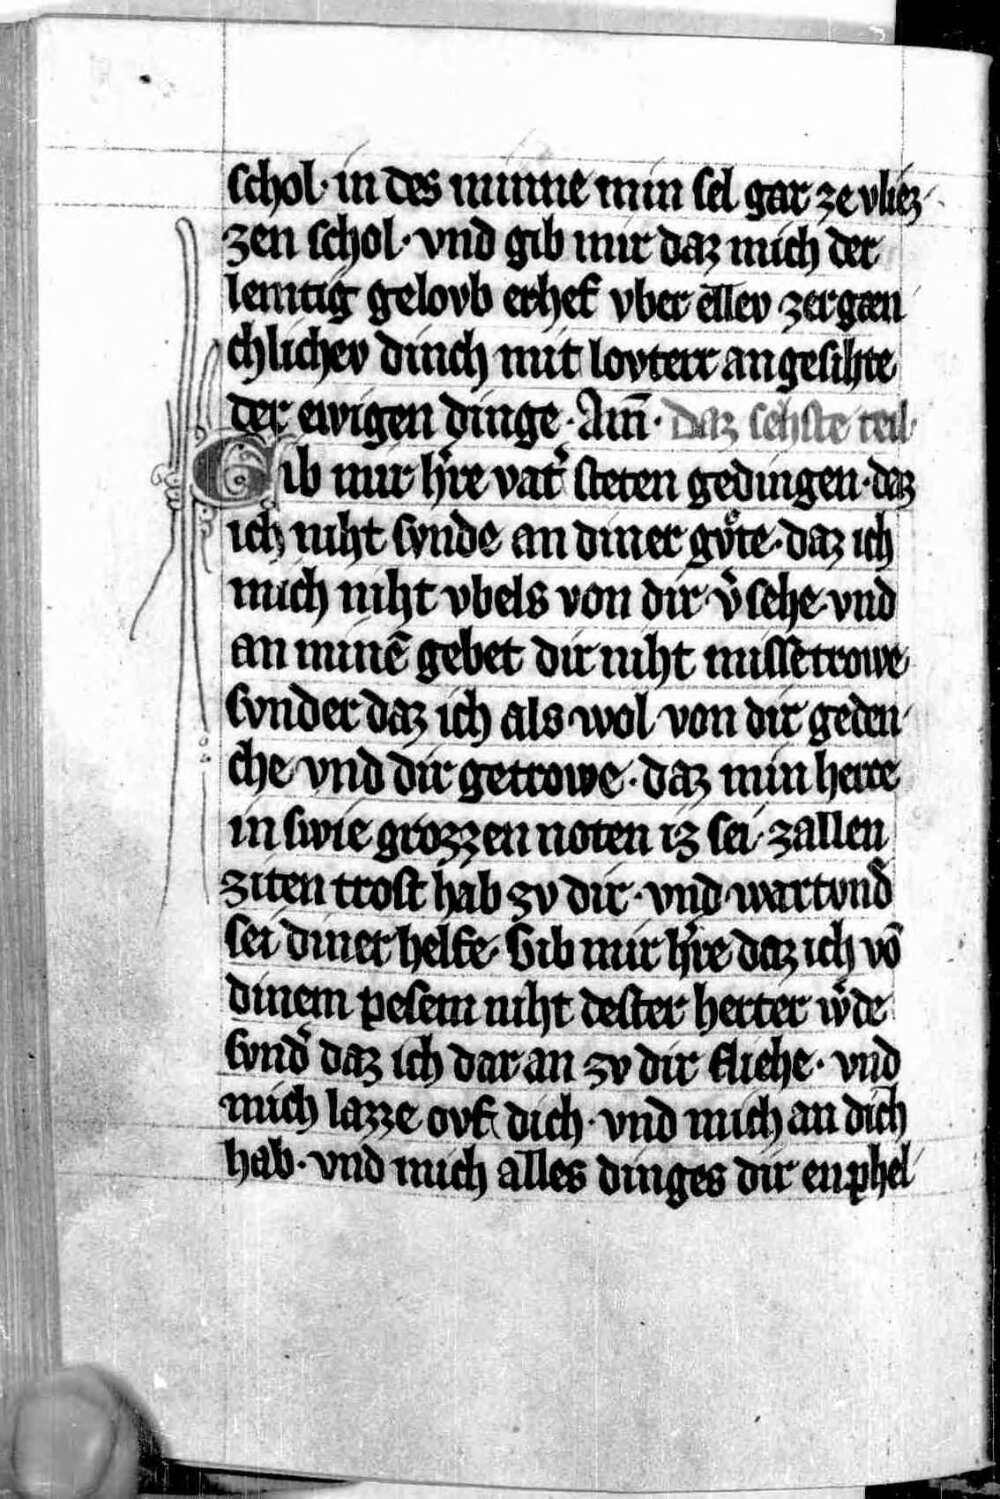 schol· in des minne min sel gar ze vliez
zen schol· vnd gib mir daz mich der
lemtig gelovb erhef vber ellev zergæn
chlichev dinch mit lovterr angesihte
der ewigen dinge· Am̄· Daz sehste teil·
Gib mir h̓re vat̓ steten gedingen· daz
ich niht svnde an diner gvͦte· daz ich
mich niht vbels von dir v̓sehe vnd
an minē gebet dir niht missetrowe
svnder daz ich als wol von dir geden
che vnd dir getrowe· daz min herre
in swie grozzen noten iz sei zallen
ziten trost hab zv dir· vnd wartvnd̓
sei diner helfe· Gib mir h̓re daz ich vō
dinem pesem niht dester herter w̓de
svnd̓ daz ich dar an zv dir fliehe· vnd
mich lazze ovf dich· vnd mich an dich
hab· vnd mich alles dinges dir enphel